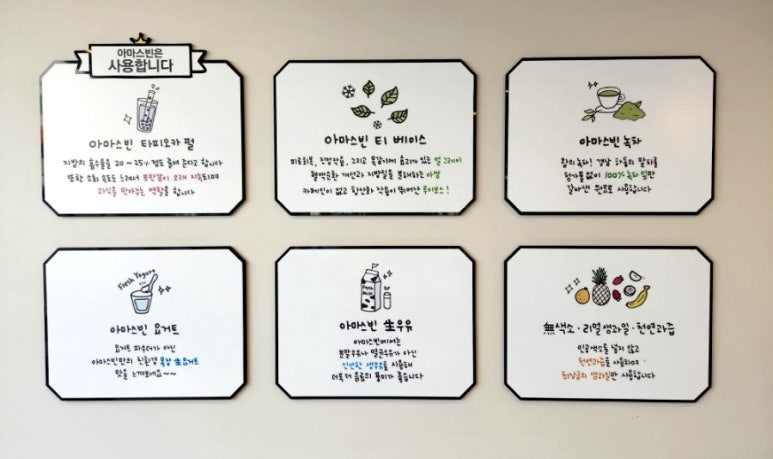 아마스빈은
사용합니다
아마스빈 타피오카 펄
지방의 흡수율을 20~25% 정도 줄여 준다고 합니다
또한 소화 속도도 느려서 포만감이 오래 지속되며
과식을 막아주는 역할을 합니다
아마스빈 티 베이스
피로회복, 진정작용, 그리고 목감기에 효과가 있는 얼그레이
혈액순환 개선과 지방질을 분해하는 아쌈
카페인이 없고 항산화 작용이 뛰어난 루이보스!
아마스빈 녹차
왕의녹차! 경남 하동의 말차를
첨가물 없이 100% 녹차 잎만
갈아낸 원료로 사용합니다
Fresh Yogurt
아마스빈 요거트
요거트 파우더가 아닌
아마스빈만의 친환경 목장 生요거트
맛을 느껴보세요~~
Fresh
Milk
아마스빈 生우유
아마스빈에서는
분말우유나 멸균우유가 아닌
신선한 생우유를 사용해
더욱더 음료의 풍미가 좋습니다
無색소·리얼생과일·천연과즙
인공색소를 넣지 않고
천연과즙을 사용하여
최상급의 생과일만 사용합니다